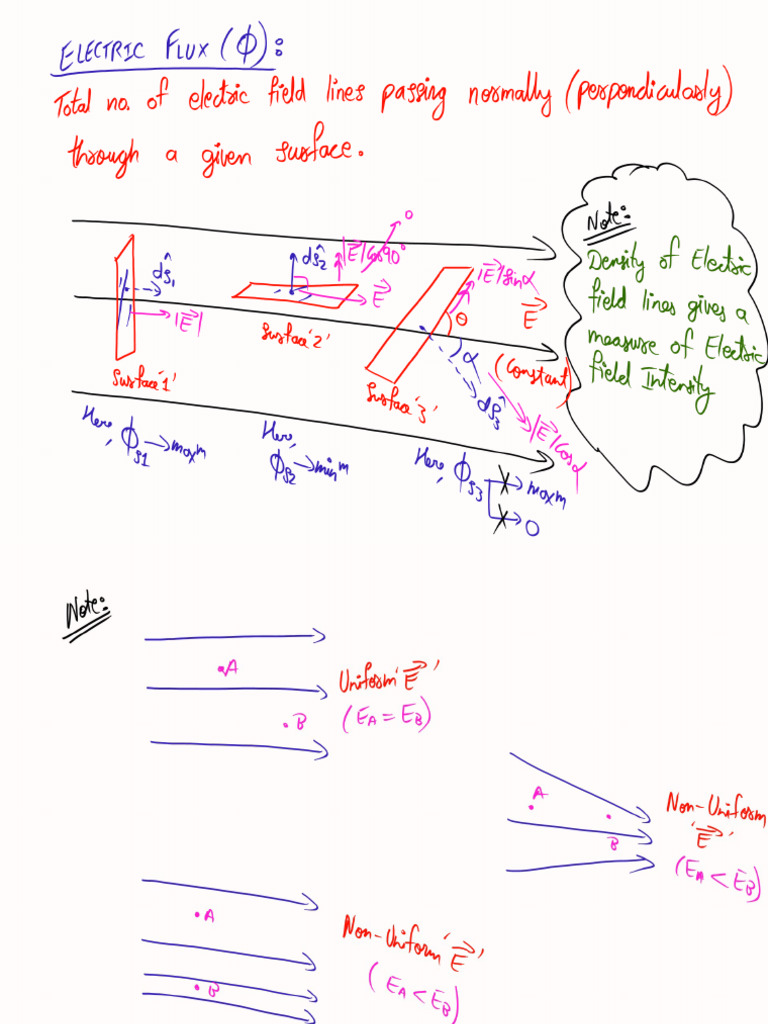 ELECTRIC FLUX (ϕ):
Total no. of electric field lines passing normally (perpendicularly)
through a given surface.
Note:
Density of Electric
field lines gives a
measure of Electric
field Intensity
dŝ₁
|E⃗|
Surface '1'
dŝ₂
|E⃗|Cos90°
0
E⃗
Surface '2'
|E⃗|sinα
θ
α
dŝ₃
|E⃗|Cosα
Surface '3'
E⃗
(Constant)
Here, ϕs1 → maxm
Here, ϕs2 → minm
Here, ϕs3 → maxm
→ 0
Note:
A
B
Uniform 'E⃗'
(EA = EB)
A
B
Non-Uniform
'E⃗'
(EA < EB)
A
B
Non-Uniform 'E⃗'
(EA < EB)